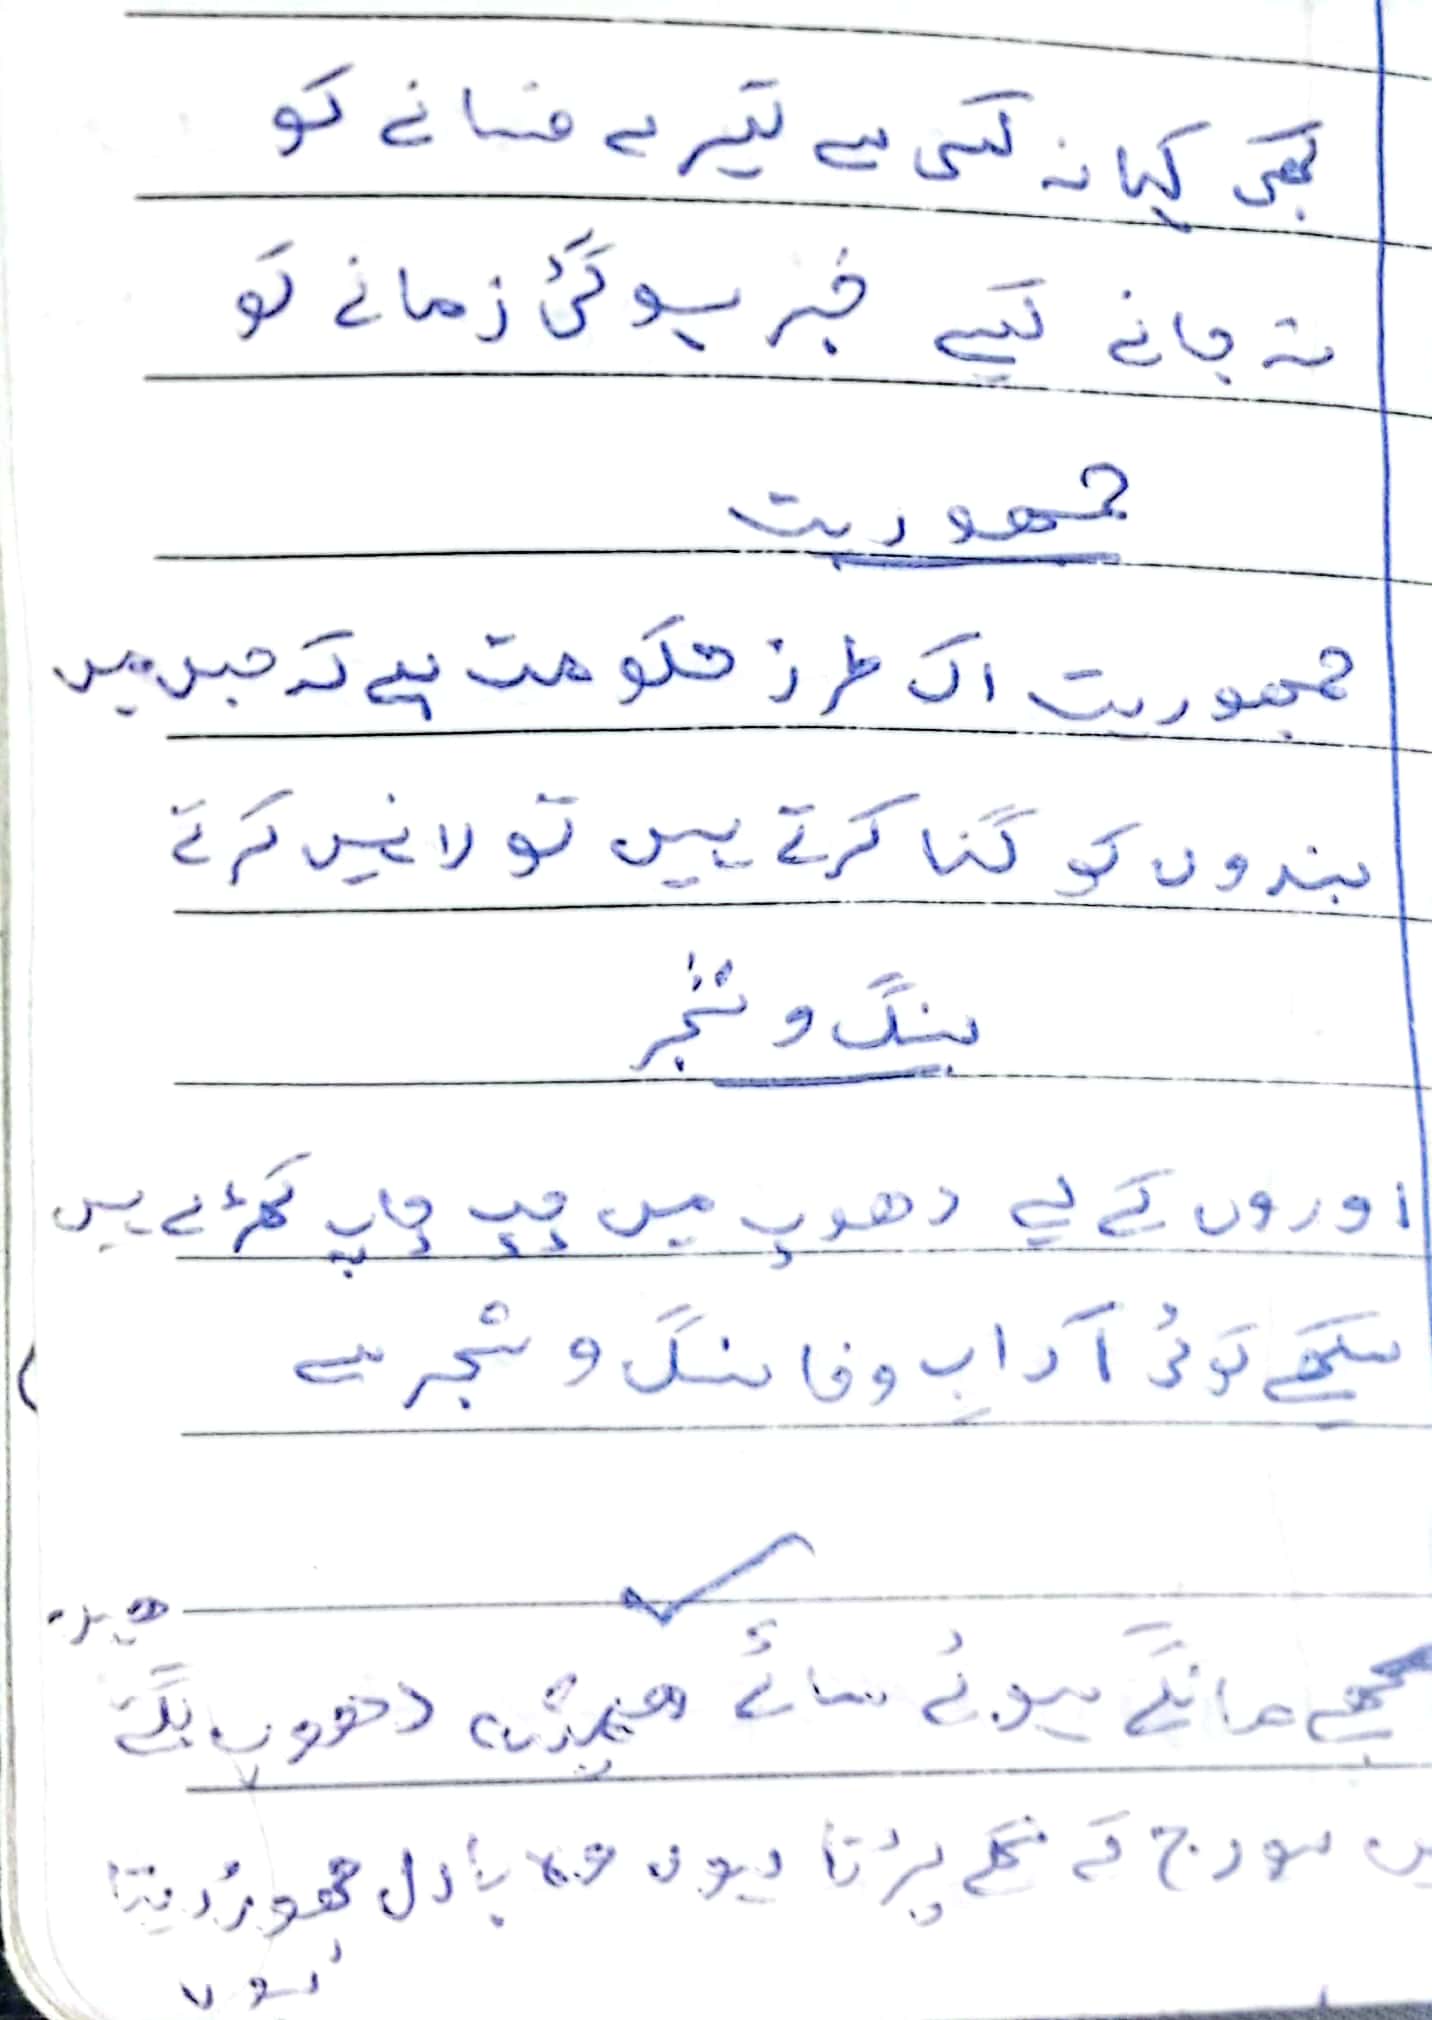 کبھی کہا نہ کسی سے تیرے فسانے کو
نہ جانے کیسے خبر ہوگئی زمانے کو
جمہوریت
جمہوریت اک طرز حکومت ہے کہ جس میں
بندوں کو گنا کرتے ہیں تولا نہیں کرتے
سنگ و شجر
اوروں کے لیے دھوپ میں چپ چاپ کھڑے ہیں
سیکھے کوئی آدابِ وفا سنگ و شجر سے
ھیں
مجھے مانگے ہوئے سائے ہمیشہ دھوپ لگتے
میں سورج کے گلے پڑتا ہوں بادل چھوڑ دیتا
ہوں